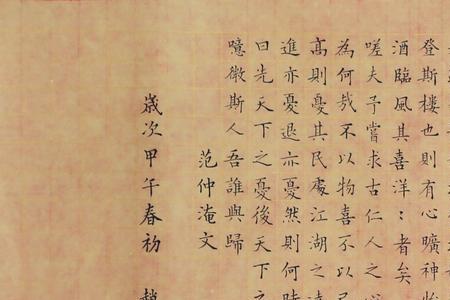 登斯樓也則有心曠神怡
酒臨風其喜洋:者矣
嗟夫予嘗求古仁人之心
為何哉不以物喜不以己
高則憂其民處江湖之遠
進亦憂退亦憂然則何時
曰先天下之憂後天下之
噫微斯人吾誰與歸
范仲淹文
歲次甲午春初 趙